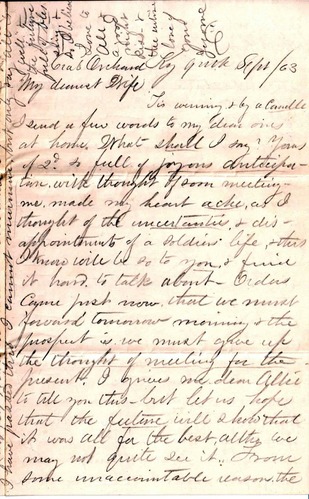 Crab Orchard Ky Sept /63
My dearest Wife
Tis evening & by a candle
I send a few words to my dear ones
at home. What shall I say? Yours
of 2d. so full of joyous anticipa-
tion, with thoughts of soon meeting
me, made my heart ache, as I
thought of the uncertainties, & dis-
appointments of a Soldiers life, & this
I know will be so to you, & find
it hard to talk about - Orders
came just now, that we must
forward tomorrow morning & the
prospect is, we must give up
the thought of meeting for the
present. I grieves me, dear Allie
to tell you this - but let us hope
that the future will show that
it was all for the best, altho we
may not quite see it. From
some unaccountable reasons, the
Love to
all &
a good
night
kiss &
the entire
love of
Your